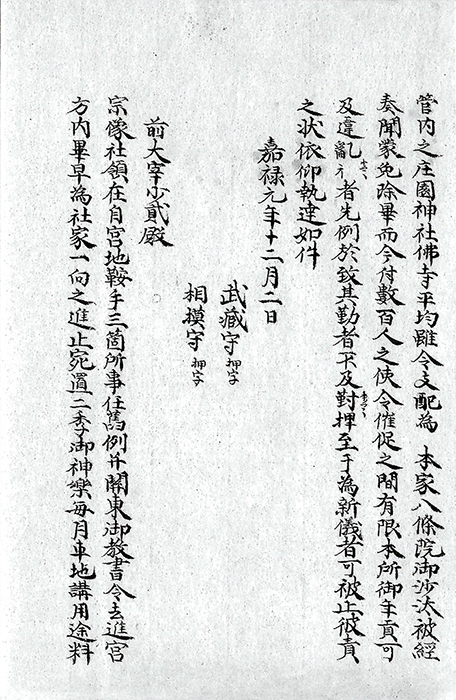 管内之庄園神社佛寺平均雖令支配為 本家八條院御沙汰被経
奏聞蒙免除畢而今付數百人之使令催促之間有限本所御年貢可
及違亂云々者先例於致其勤者不及對捍至于為新儀者可被止彼責
之状依仰執達如件
嘉禄元年十二月二日
武藏守 押字
相摸守 押字
前大宰少貳殿
宗像社領在自宮地鞍手三箇所事任舊例并關東御教書令去進宮
方内畢早為社家一向之進止宛置二季御神樂毎月車地講用途料